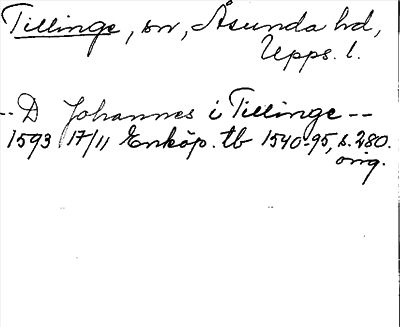 Tillinge, sn, Åsunda hd,
Upps. l.
-- D Johannes i Tillinge --
1593 17/11 Enköp. tb 1540-95, s. 280.
orig.